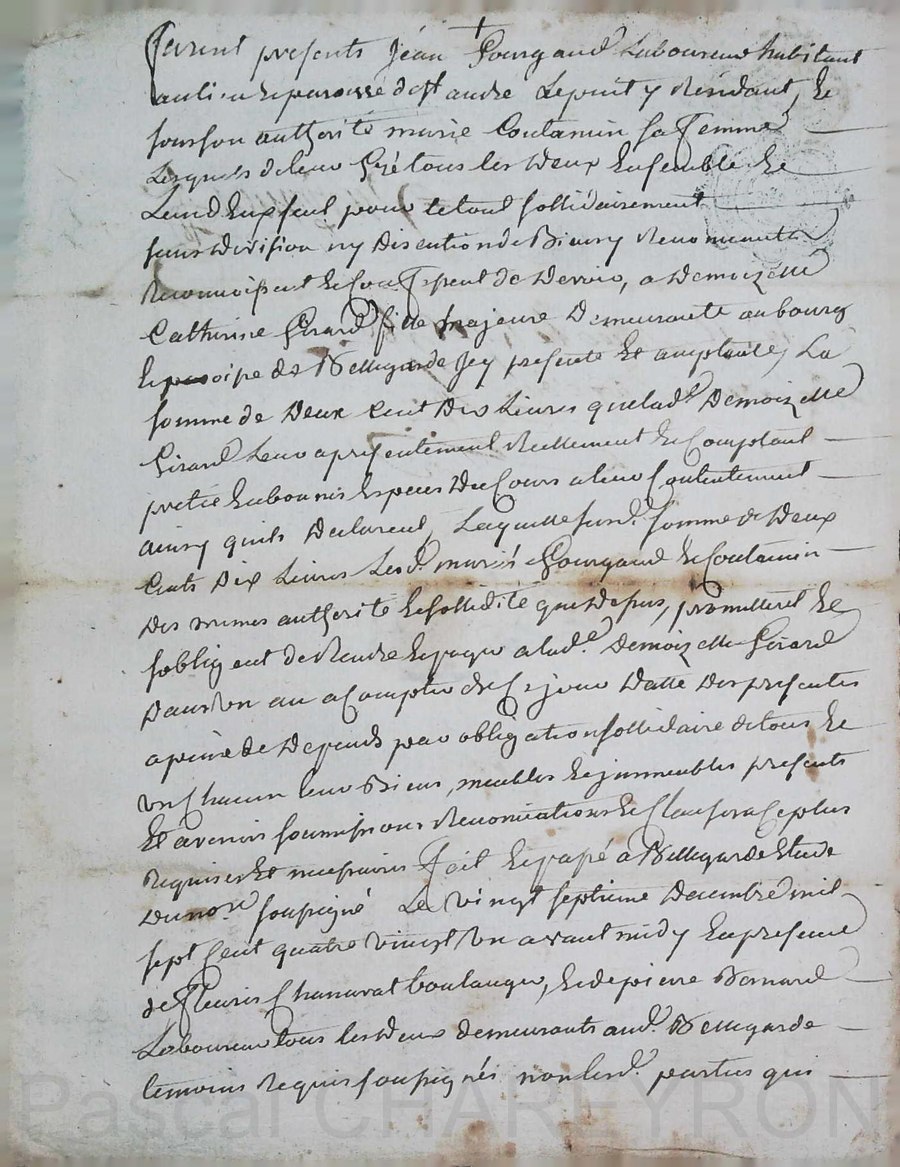 furent presents Jéan Gourgaud Laboureur habitant
au lieu et paroisse de st andre Le puit y Résidant, Et
sous son authorité marie Coutamin sa femme
Lesquels de leur Gré tous les deux Ensemble Et
L'un d'Eux seul pour le tout sollidairement
sans Division ny Discution de Biens y Renonceants
Reconnoissent Et Confessent de Devoir, a Demoizelle
Catherine Girard fille majeure Demeurante au bourg
Et paroisse de Bellegarde Icy presente Et acceptante, La
somme de Deux Cent Dix Livres que lade Demoizelle
Girard Leur a presentement Réellement Et Comptant
pretée En bonnes Especes Du Cours a leur Contentement
ainsy quils Declarent, Laquelle susd. somme de Deux
Cents Dix Livres Lesd. mariés Gourgaud Et Coutamin
Des memes authorité Et sollidité que dessus, promettent Et
sobligent de Rendre Et payer a lade. Demoizelle Girard
Dans Un an a Compter de Ce jour Datte Des presentes
a peine de Depends par obligation sollidaire de tous Et
Un Chacun leur Biens, meubles Et immeubles presents
Et avenir soumissions Renonciations Et Clauses a Ce plus
Requises Et necessaires fait Et passé a Bellegarde Etude
Du nore soussigné Le Vingt septieme Decembre mil
sept Cent quatre Vingt Un avant midy En presence
de fleuris Chanavat boulanger, Et de pierre Bernard
Laboureur tous les deux demeurants aud. Bellegarde
temoins Requis soussignés non lesd. parties qui
Pascal CHAREYRON